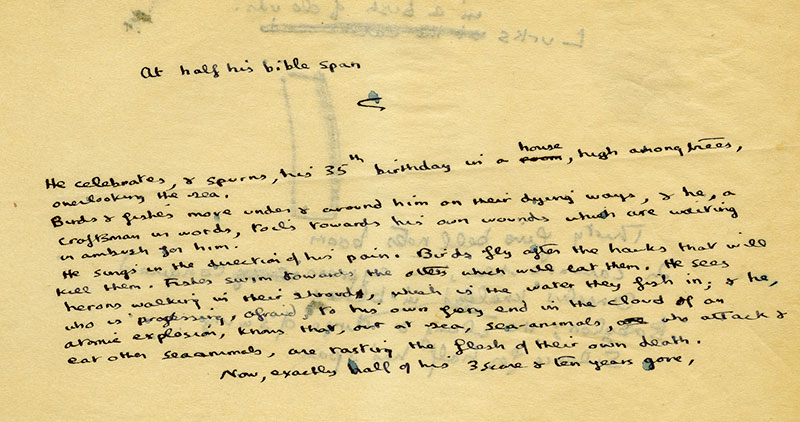 At half his bible span
He celebrates, & spurns, his 35th birthday in a room house, high among trees,
overlooking the sea.
Birds & fishes move under & around him on their dying ways, & he, a
craftsman in words, toils towards his own wounds which are waiting
in ambush for him.
He sings in the direction of his pain. Birds fly after the hawks that will
kill them. Fishes swim towards the otters which will eat them. He sees
herons walking in their shrouds, which is the water they fish in; & he,
who is progressing, afraid, to his own fiery end in the cloud of an
atomic explosion, knows that, out at sea, sea-animals, who attack &
eat other sea animals, are tasting the flesh of their own death.
Now, exactly half of his 3 score & ten years gone,